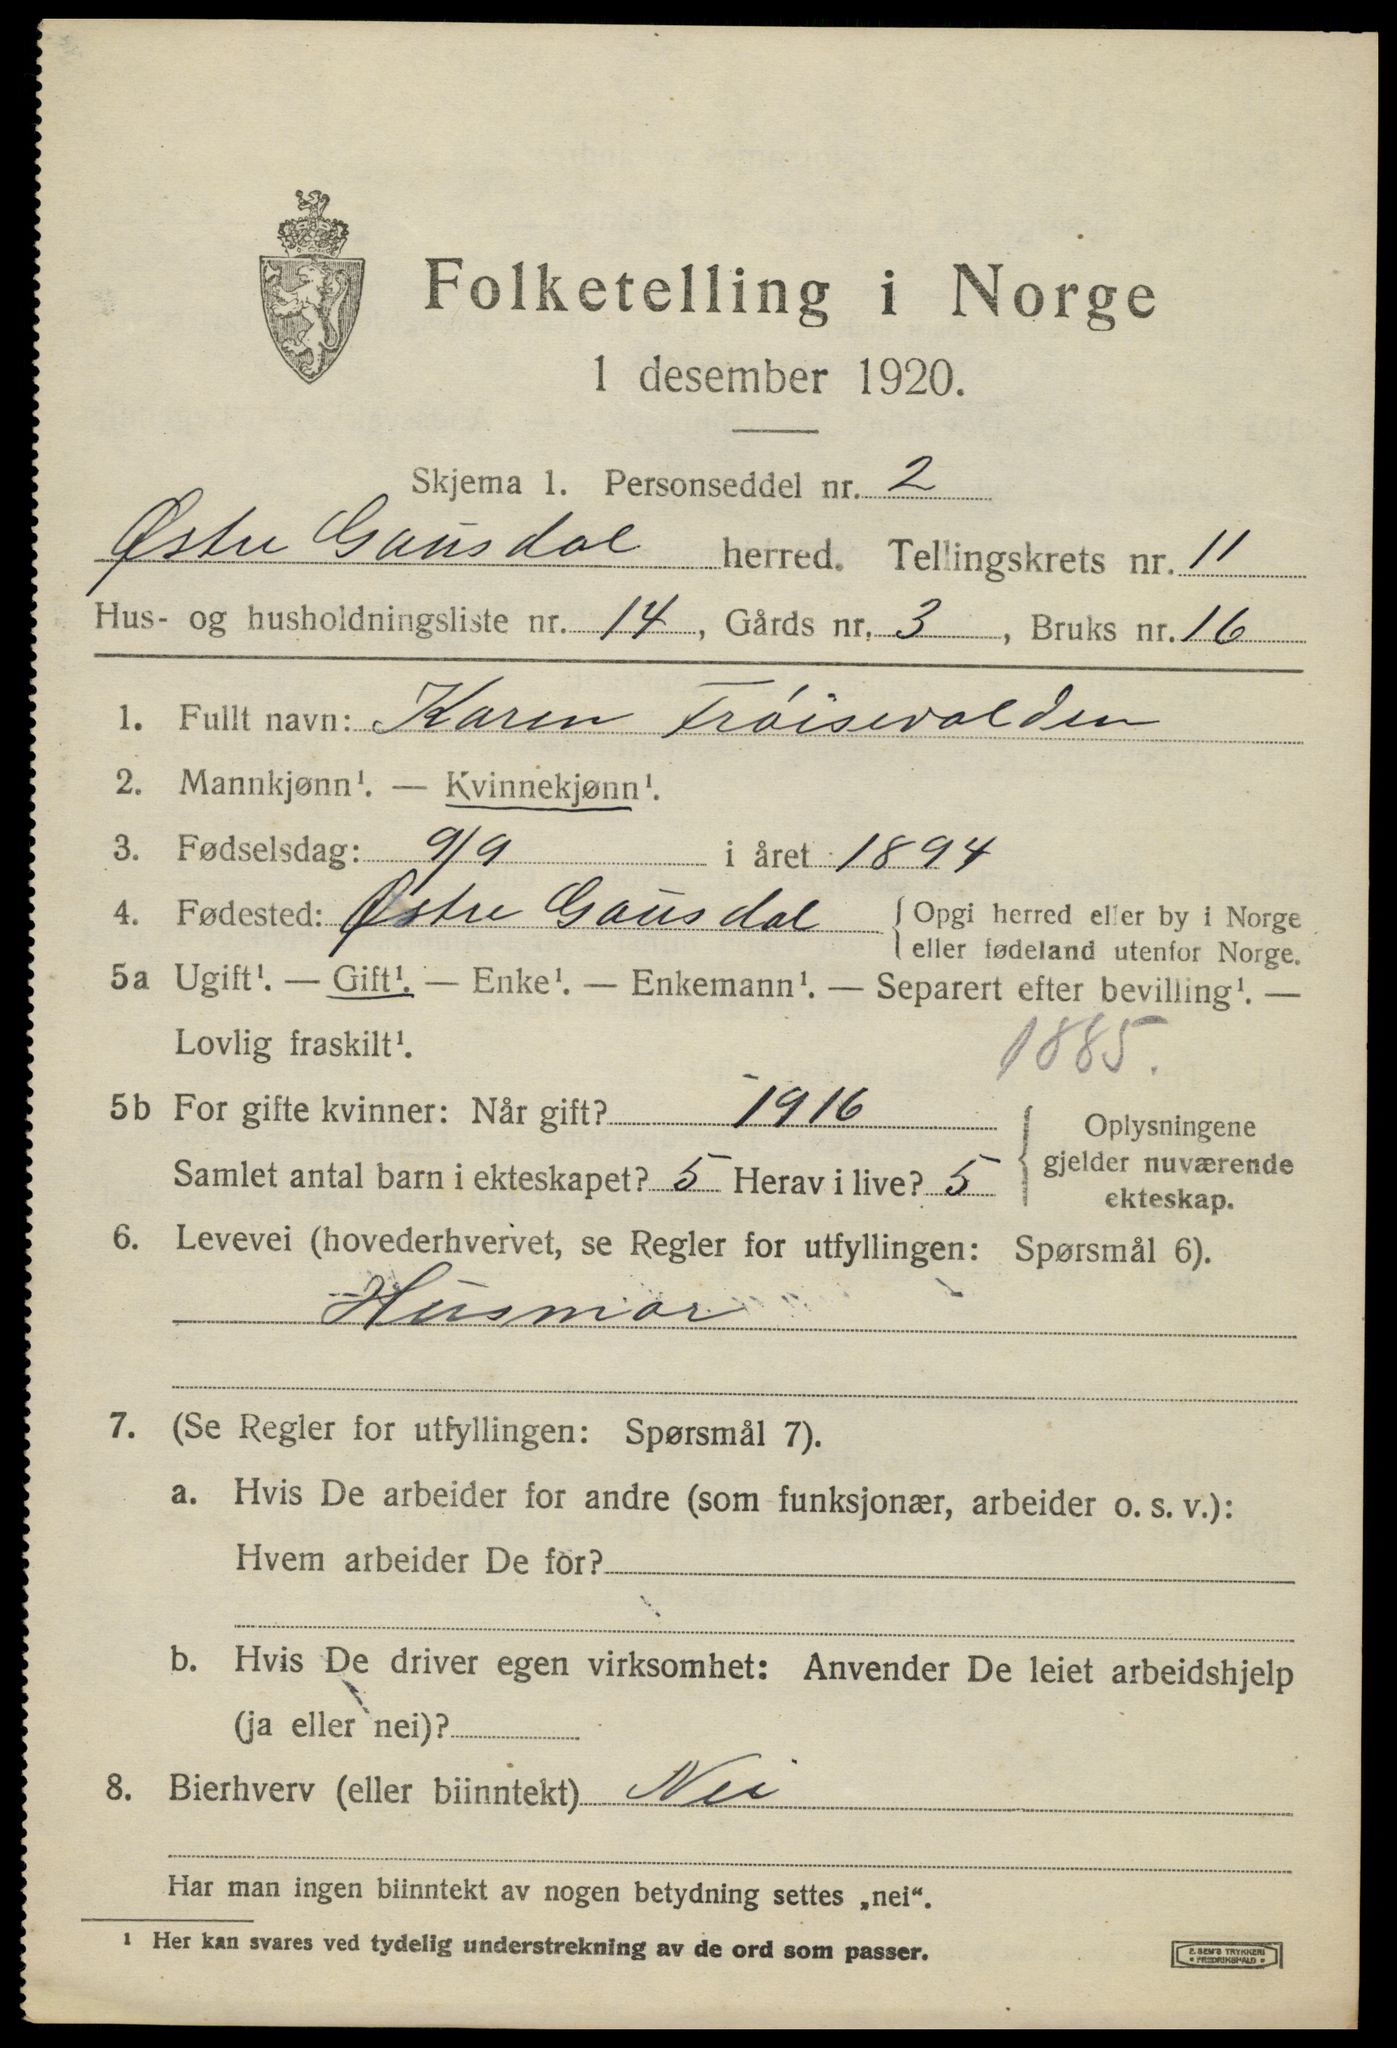 Folketelling i Norge
1 desember 1920.
Skjema 1. Personseddel nr. 2
Østre Gausdal herred. Tellingskrets nr. 11
Hus- og husholdningsliste nr. 14, Gårds nr. 3, Bruks nr. 16
1. Fullt navn: Karen Frøisevolden
2. Mannkjønn¹. — Kvinnekjønn¹.
3. Fødselsdag: 9/9 i året 1894
4. Fødested: Østre Gausdal { Opgi herred eller by i Norge
eller fødeland utenfor Norge.
5a Ugift¹. — Gift¹. — Enke¹. — Enkemann¹. — Separert efter bevilling¹. —
Lovlig fraskilt¹.
1885.
5b For gifte kvinner: Når gift? 1916
Samlet antal barn i ekteskapet? 5 Herav i live? 5
{ Oplysningene
gjelder nuværende
ekteskap.
6. Levevei (hovederhvervet, se Regler for utfyllingen: Spørsmål 6).
Husmor
7. (Se Regler for utfyllingen: Spørsmål 7).
a. Hvis De arbeider for andre (som funksjonær, arbeider o. s. v.):
Hvem arbeider De for?
b. Hvis De driver egen virksomhet: Anvender De leiet arbeidshjelp
(ja eller nei)?
8. Bierhverv (eller biinntekt) Nei
Har man ingen biinntekt av nogen betydning settes „nei“.
¹ Her kan svares ved tydelig understrekning av de ord som passer.
E. SEM'S TRYKKERI
• FREDRIKSHALD •